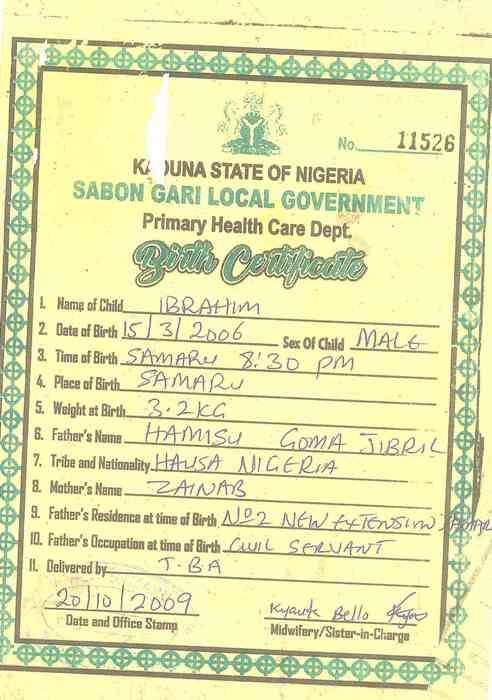 No. 11526
KADUNA STATE OF NIGERIA
SABON GARI LOCAL GOVERNMENT
Primary Health Care Dept.
Birth Certificate
1. Name of Child IBRAHIM
2. Date of Birth 15/3/2006 Sex Of Child MALE
3. Time of Birth SAMARU 8:30 PM
4. Place of Birth SAMARU
5. Weight at Birth 3.2KG
6. Father's Name HAMISU GOMA JIBRIL
7. Tribe and Nationality HAUSA NIGERIA
8. Mother's Name ZAINAB
9. Father's Residence at time of Birth No2 NEW EXTENSION
10. Father's Occupation at time of Birth CIVIL SERVANT
11. Delivered by T.BA
20/10/2009
Date and Office Stamp
Kyauta Bello
Midwifery/Sister-in-Charge